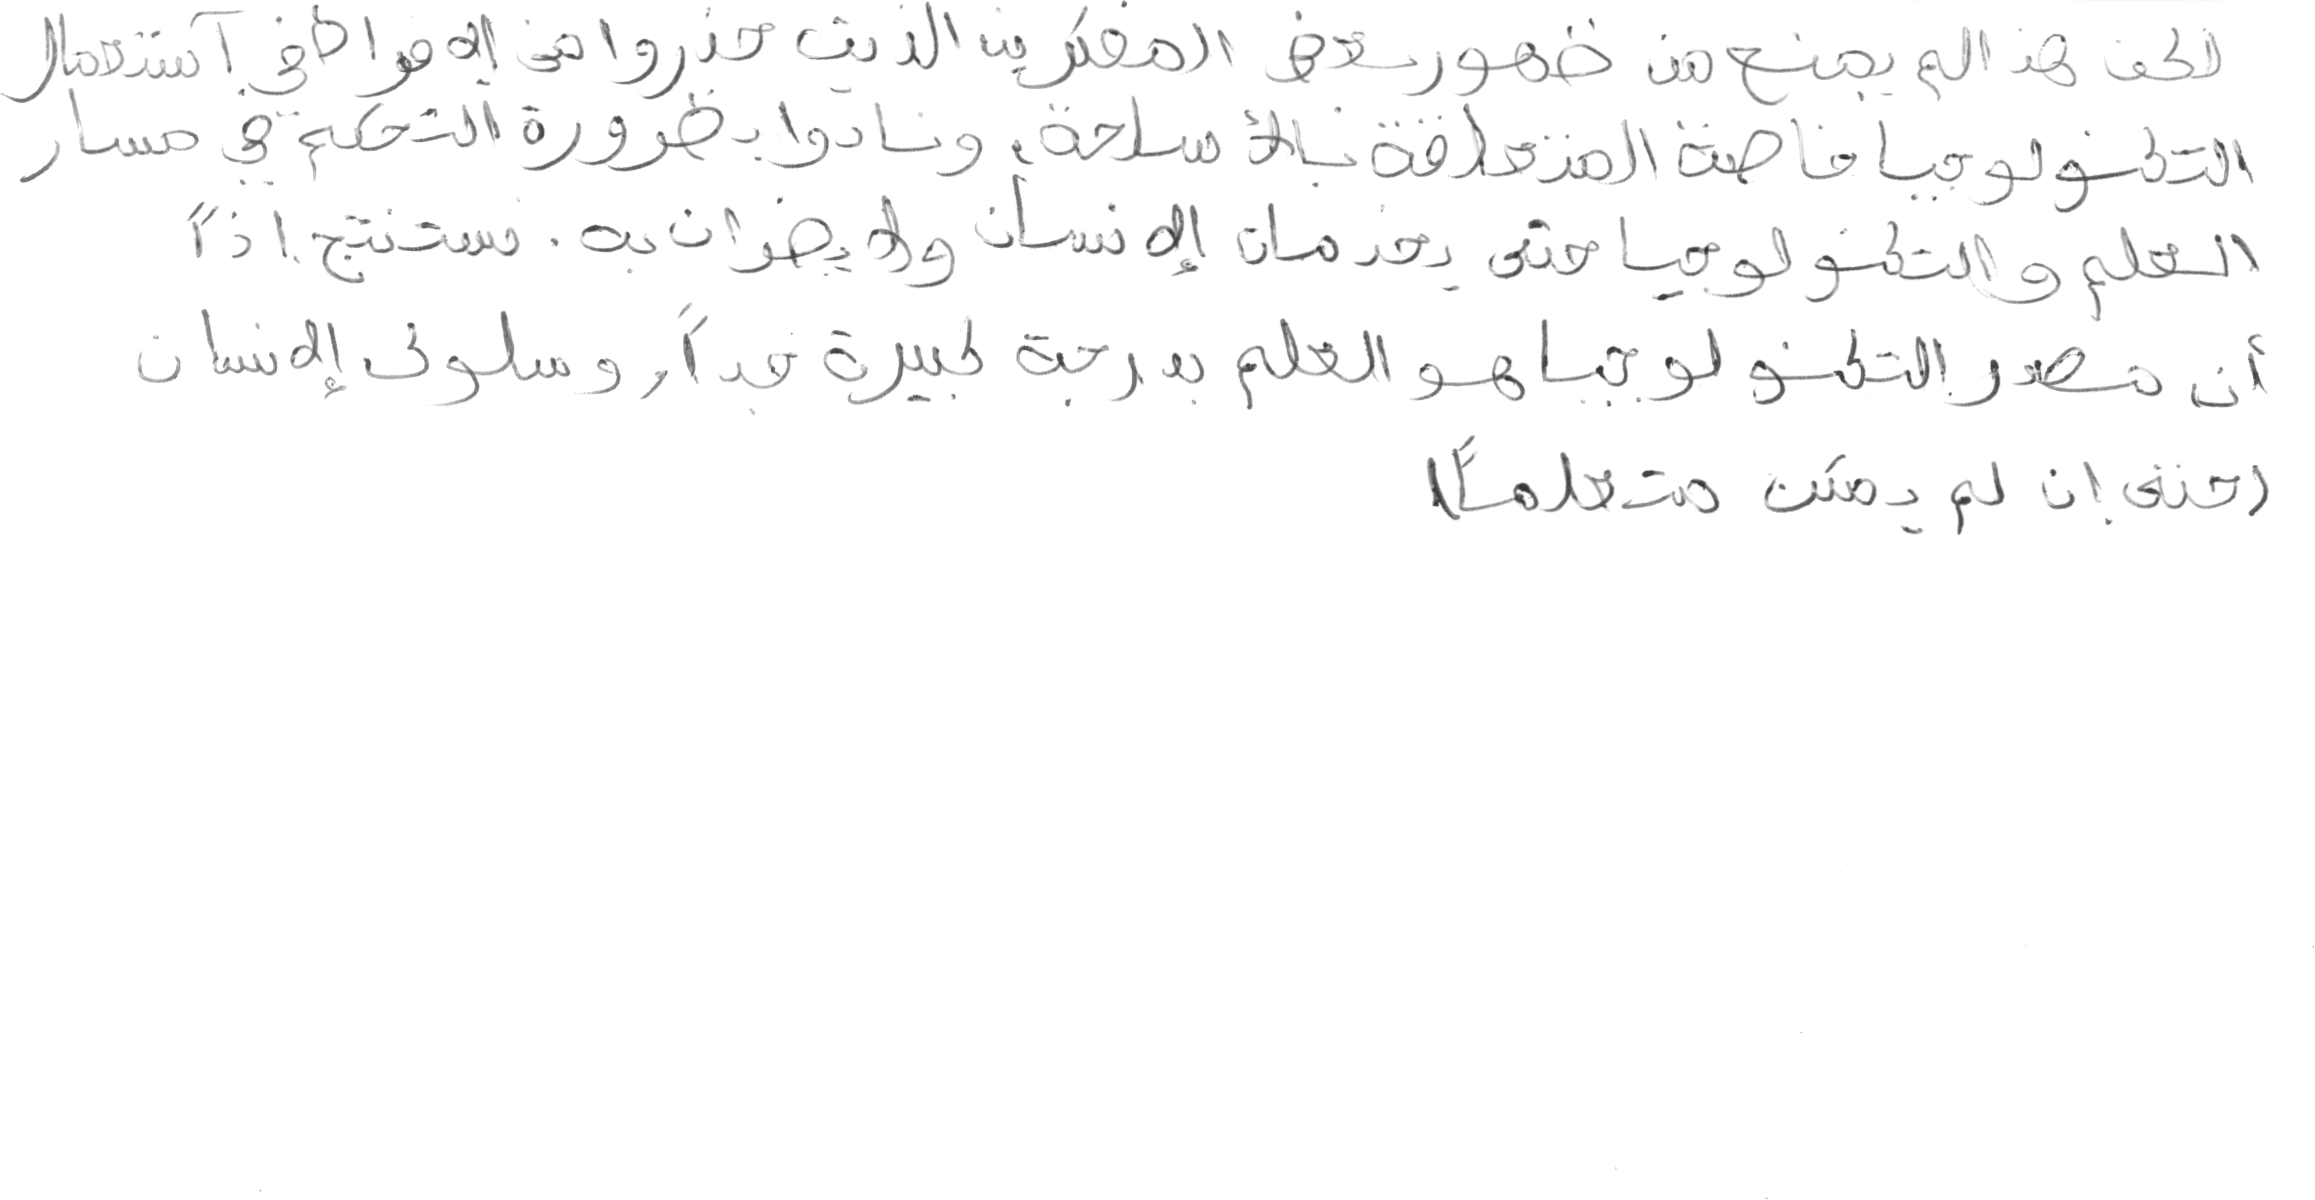 لكن هذا لم يمنع من ضهور بعض المفكرين الذين حذروا من الإفراط في آستعمال
التكنولوجيا خاصة المتعلقة بالأسلحة، ونادوا بظرورة التحكم في مسار
العلم والتكنولوجيا حتى يخدمان الإنسان ولا يضران به. نستنتج اذاً
أن مصدر التكنولوجيا هو العلم بدرجة كبيرة جداً، وسلوك الإنسان
(حتى إن لم يكن متعلماً)